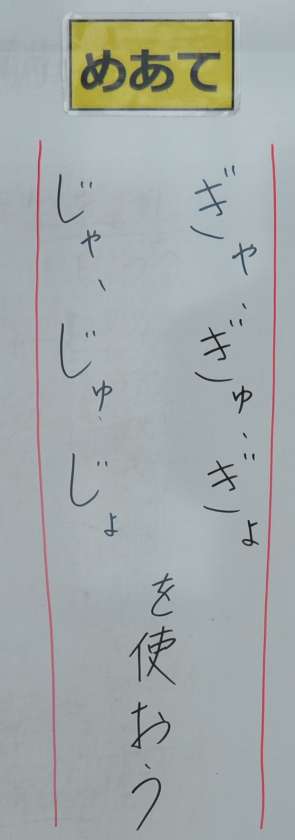 めあて
ぎゃ、ぎゅ、ぎょ
じゃ、じゅ、じょ
を使おう